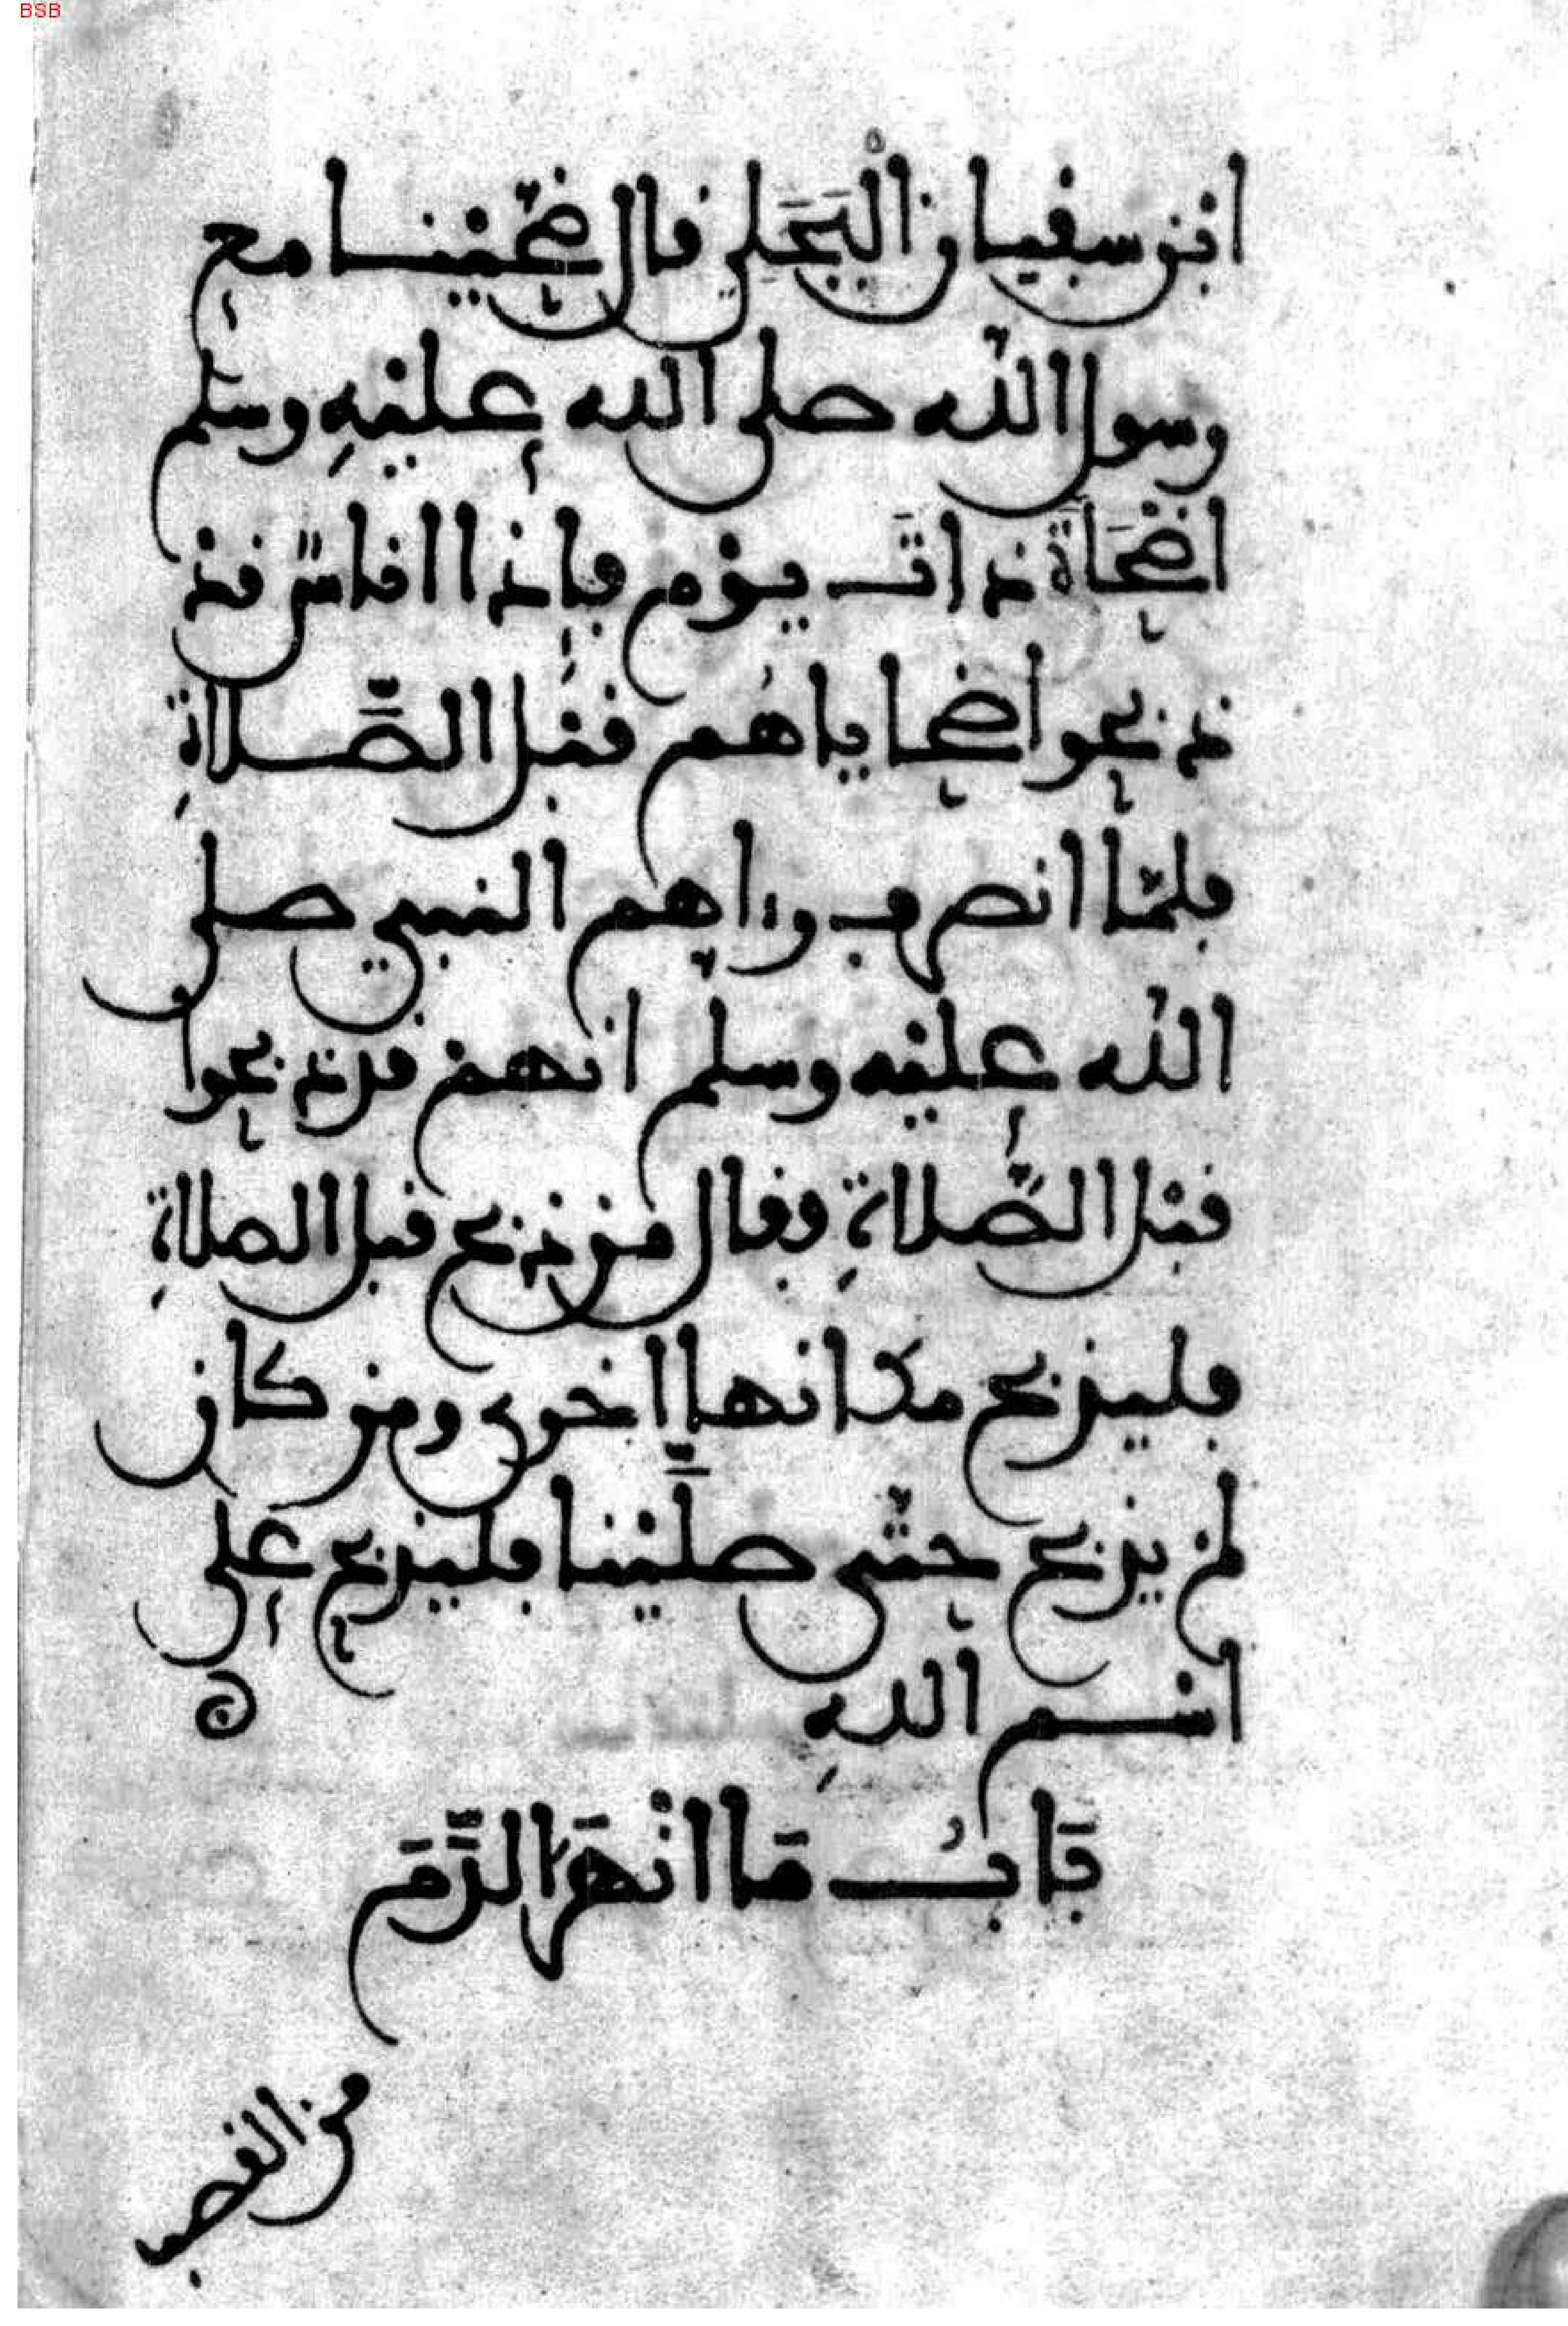 BSB
ابن سفيان الْبَجَلي قال ضحّينا مع
رسول الله صلى الله عليه وسلم
اضحَاةً ذاتَ يوْم فإذا اناسٌ قد
ذبحوا ضحاياهُم قبْل الصَّلاةِ
فلمّا انصرف رءاهم النبي صلى
الله عليْه وسلم انهمْ قد ذبحوا
قبْل الصّلاةِ وقال من ذبح قبل الصلاةِ
فليذبح مكانها اخرى ومن كان
لم يذبح حتّى صلَّيْنا فليذبح على
اسْم اللهِ
بَابُ مَا انْهَرَ الدَّمَ
من القصب